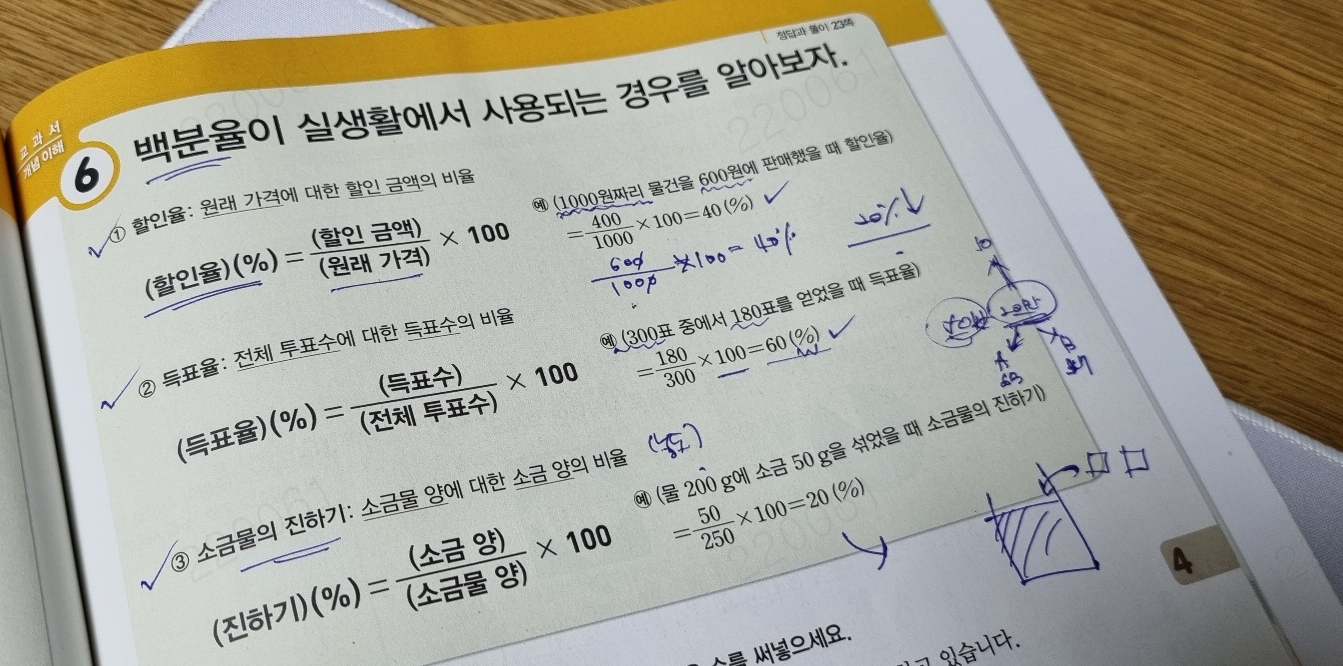 정답과 풀이 23쪽
교과서
개념 이해
6
백분율이 실생활에서 사용되는 경우를 알아보자.
① 할인율: 원래 가격에 대한 할인 금액의 비율
(할인율)(%) = (할인 금액)/(원래 가격) × 100
예 (1000원짜리 물건을 600원에 판매했을 때 할인율)
= 400/1000 × 100 = 40(%)
600/1000 × 100 = 40%
20%↓
② 득표율: 전체 투표수에 대한 득표수의 비율
(득표율)(%) = (득표수)/(전체 투표수) × 100
예 (300표 중에서 180표를 얻었을 때 득표율)
= 180/300 × 100 = 60(%)
③ 소금물의 진하기: 소금물 양에 대한 소금 양의 비율
(진하기)(%) = (소금 양)/(소금물 양) × 100
예 (물 200 g에 소금 50 g을 섞었을 때 소금물의 진하기)
= 50/250 × 100 = 20(%)
4
써넣으세요.
있습니다.